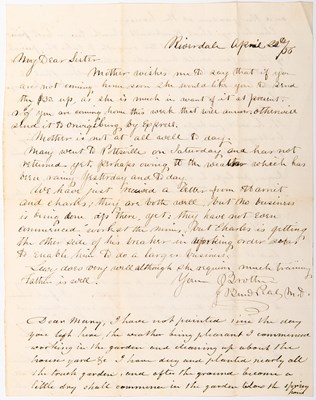 Riverdale April 22d/56
My Dear Sister
Mother wishes me to say that if you
are not coming home soon she would like you to send
the $30. up, as she is much in want of it at present.
If you are coming home this week that will answer, otherwise
send it to Orwigsburg, by Express.
Mother is not at all well to day.
Mary went to Pottsville on Saturday, and has not
returned yet, perhaps owing to the weather which has
been rainy Yesterday and to day.
We have just received a letter from Harriet
and Charles; they are both well, but the business
is being done up there, yet; they have not even
commenced work at the mines, but Charles is getting
the other side of his breaker in working order so as
to enable him to do a larger business.
Lucy does very well although she requires much training
Father is well.
Your Brother
M.D.
Dear Mary, I have not painted since the day
you left here the weather being pleasant I commenced
working in the garden and cleaning up about the
house yard &c. I have dug and planted nearly all
the garden, and after the ground become a
little dry shall commence in the garden below the spring